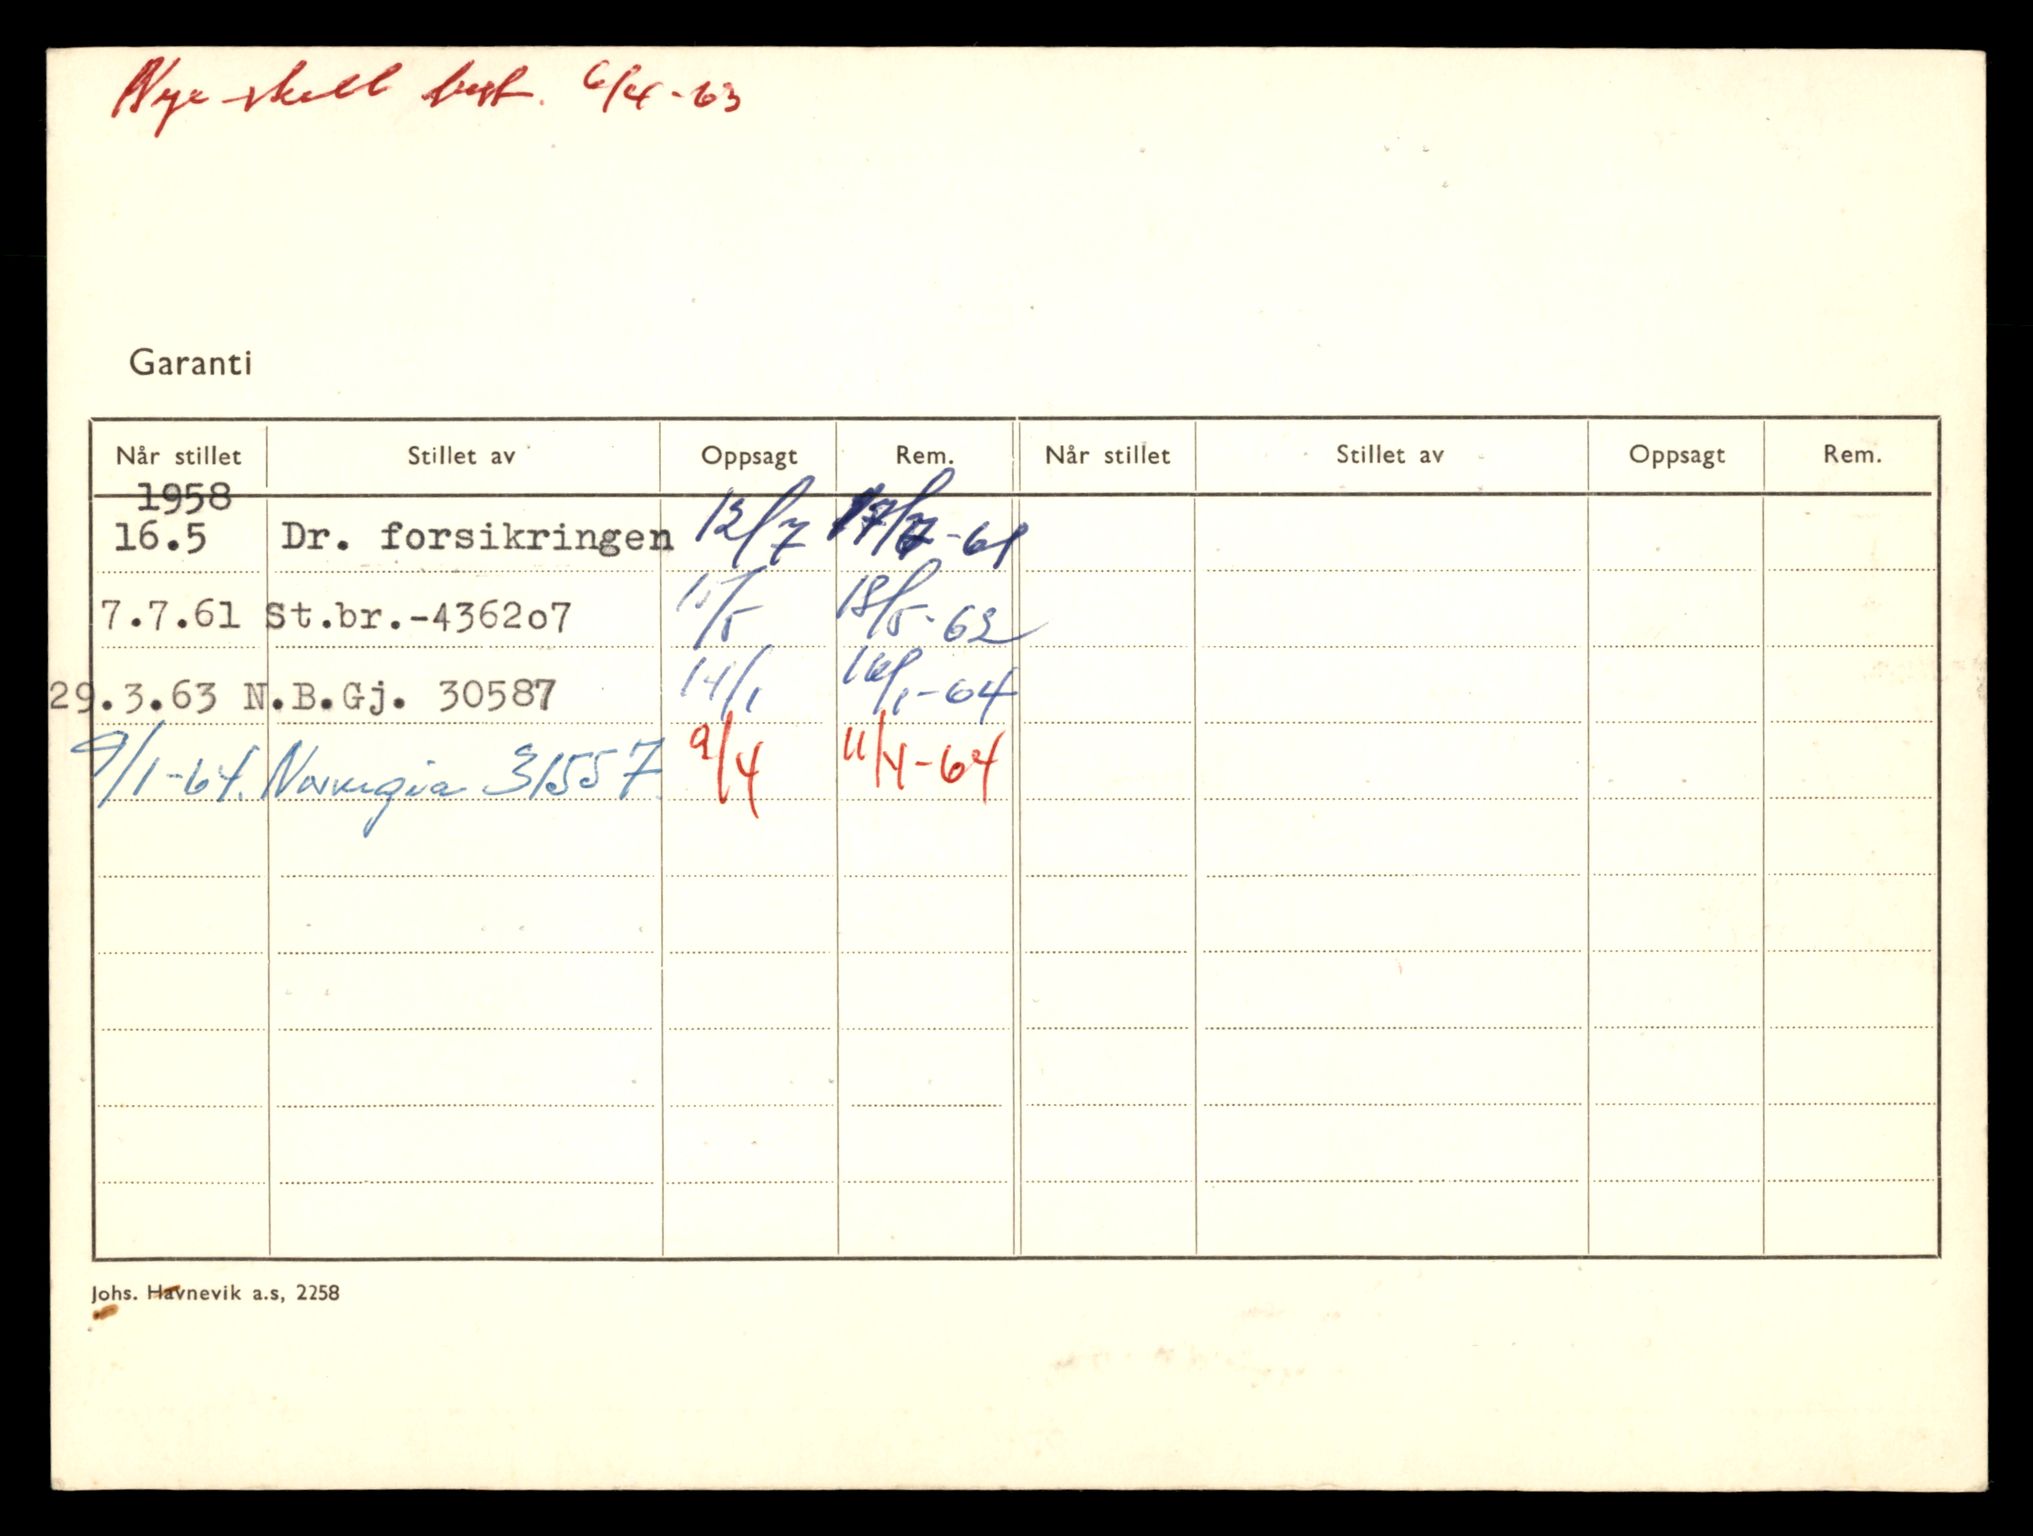 Nye skilt best. 6/4-63
Garanti
Når stillet Stillet av Oppsagt Rem. Når stillet Stillet av Oppsagt Rem.
1958
16.5 Dr. forsikringen 12/7 17/7-61
7.7.61 St.br.-4362o7 15/5 18/5-62
29.3.63 N.B.Gj. 30587 14/1 16/1-64
9/1-64. Norvegia 31557 9/4 11/4-64
Johs. Havnevik a.s, 2258